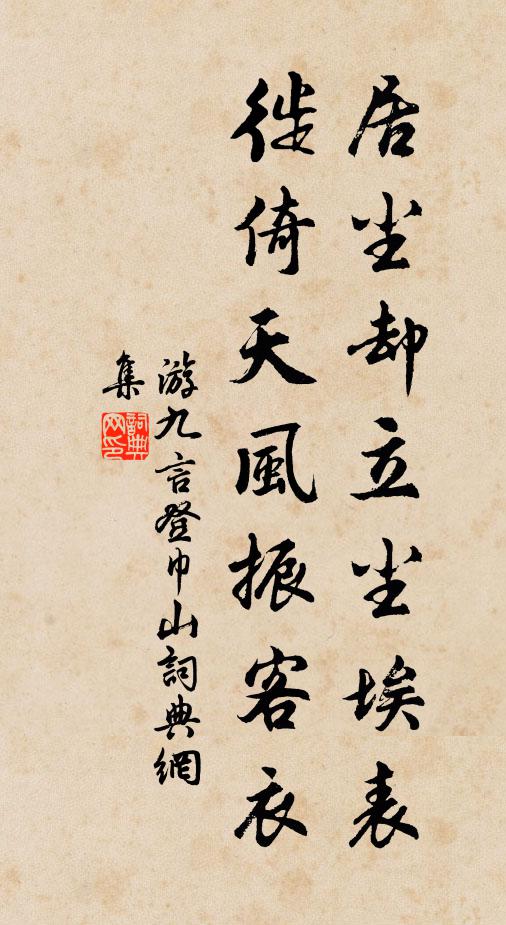 居尘却立尘埃表
徙倚天風振客衣
游九言登巾山詞典網
集
詞典網印